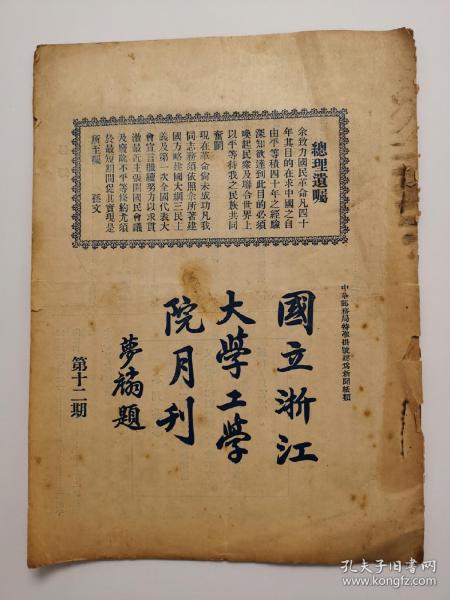 總理遺囑
余致力國民革命凡四十
年其目的在求中國之自
由平等積四十年之經驗
深知欲達到此目的必須
喚起民衆及聯合世界上
以平等待我之民族共同
奮鬭
現在革命尚未成功凡我
同志務須依照余所著建
國方略建國大綱三民主
義及第一次全國代表大
會宣言繼續努力以求貫
澈最近主張開國民會議
及廢除不平等條約尤須
於最短期間促其實現是
所至囑
孫文
中華郵務局特准掛號認爲新聞紙類
國立浙江
大學工學
院月刊
夢麟題
第十二期
孔夫子旧书网
www.kongfz.com